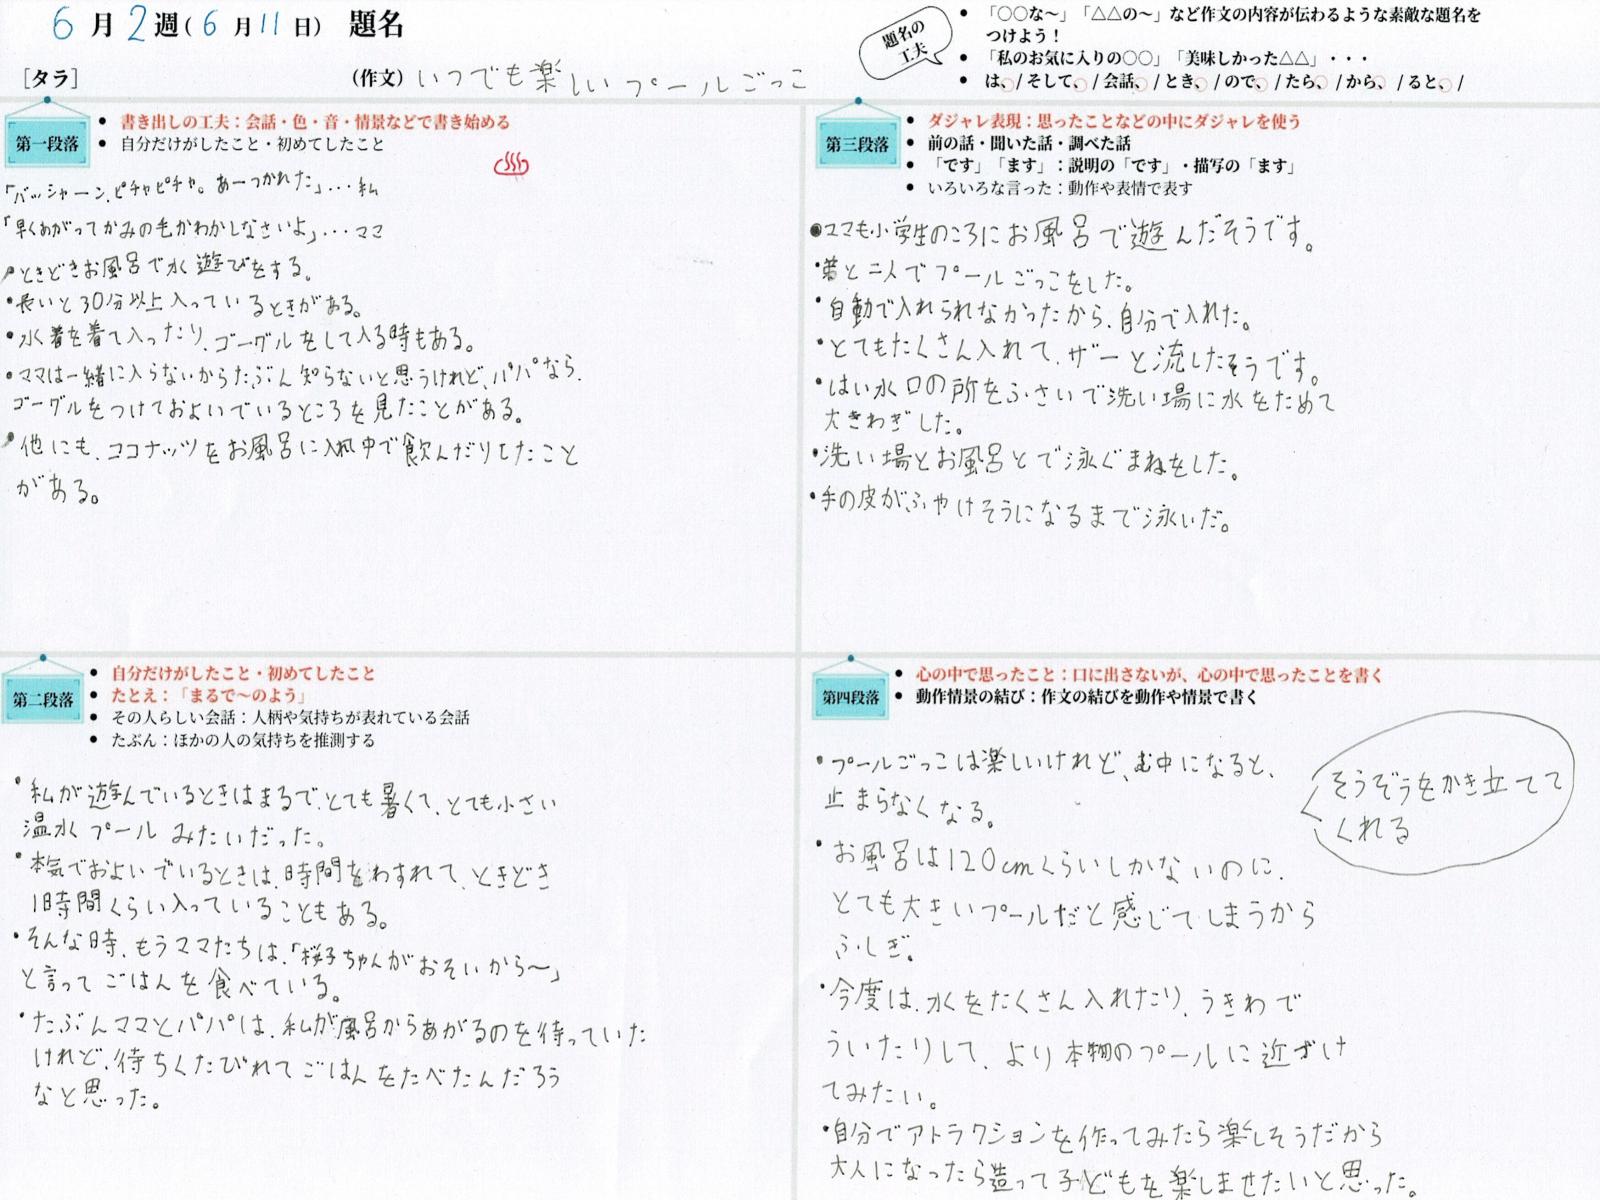 6月2週(6月11日) 題名
[タラ] (作文)いつでも楽しいプールごっこ
題名の
工夫
● 「○○な〜」「△△の〜」など作文の内容が伝わるような素敵な題名を
つけよう！
● 「私のお気に入りの○○」「美味しかった△△」・・・
● は、/ そして、/ 会話、/ とき、/ ので、/ たら、/ から、/ ると、/
第一段落
● 書き出しの工夫：会話・色・音・情景などで書き始める
● 自分だけがしたこと・初めてしたこと
「バッシャーン、ピチャピチャ。あーつかれた」…私
「早くあがってかみの毛かわかしなさいよ」…ママ
・ときどきお風呂で水遊びをする。
・長いと30分以上入っているときがある。
・水着を着て入ったり、ゴーグルをして入る時もある。
・ママは一緒に入らないからたぶん知らないと思うけれど、パパなら、
ゴーグルをつけておよいでいるところを見たことがある。
・他にも、ココナッツをお風呂に入れ中で飲んだりしたこと
がある。
第二段落
● 自分だけがしたこと・初めてしたこと
● たとえ：「まるで〜のよう」
● その人らしい会話：人柄や気持ちが表れている会話
● たぶん：ほかの人の気持ちを推測する
・私が遊んでいるときはまるで、とても暑くて、とても小さい
温水プールみたいだった。
・本気でおよいでいるときは、時間をわすれて、ときどき
1時間くらい入っていることもある。
・そんな時、もうママたちは、「桜子ちゃんがおそいから〜」
と言ってごはんを食べている。
・たぶんママとパパは、私が風呂からあがるのを待っていた
けれど、待ちくたびれてごはんをたべたんだろう
なと思った。
第三段落
● ダジャレ表現：思ったことなどの中にダジャレを使う
● 前の話・聞いた話・調べた話
● 「です」「ます」：説明の「です」・描写の「ます」
● いろいろな言った：動作や表情で表す
・ママも小学生のころにお風呂で遊んだそうです。
・弟と二人でプールごっこをした。
・自動で入れられなかったから、自分で入れた。
・とてもたくさん入れて、ザーと流したそうです。
・はい水口の所をふさいで洗い場に水をためて
大きわぎした。
・洗い場とお風呂とで泳ぐまねをした。
・手の皮がふやけそうになるまで泳いだ。
第四段落
● 心の中で思ったこと：口に出さないが、心の中で思ったことを書く
● 動作情景の結び：作文の結びを動作や情景で書く
・プールごっこは楽しいけれど、む中になると、
止まらなくなる。
そうぞうをかき立てて
くれる
・お風呂は120cmくらいしかないのに、
とても大きいプールだと感じてしまうから
ふしぎ。
・今度は、水をたくさん入れたり、うきわで
ういたりして、より本物のプールに近づけ
てみたい。
・自分でアトラクションを作ってみたら楽しそうだから
大人になったら造って子どもを楽しませたいと思った。